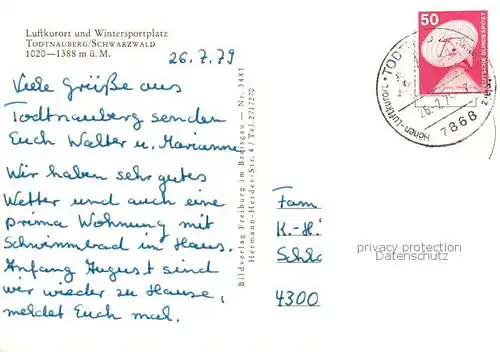 Luftkurort und Wintersportplatz
TODTNAUBERG/SCHWARZWALD
1020—1388 m ü. M.
26.7.79
Viele Grüße aus
Todtnauberg senden
Euch Walter u. Marianne
Wir haben sehr gutes
Wetter und auch eine
prima Wohnung mit
Schwimmbad in Haus.
Anfang August sind
wir wieder zu Hause,
meldet Euch mal.
Bildverlag Freiburg im Breisgau — Nr. 3481
Hermann-Herder-Str. 4 / Tel. 2717270
50
DEUTSCHE BUNDESPOST
7868
Höhen-Luftkurort
Fam
K.-H.
Schl
4300
privacy protection
Datenschutz